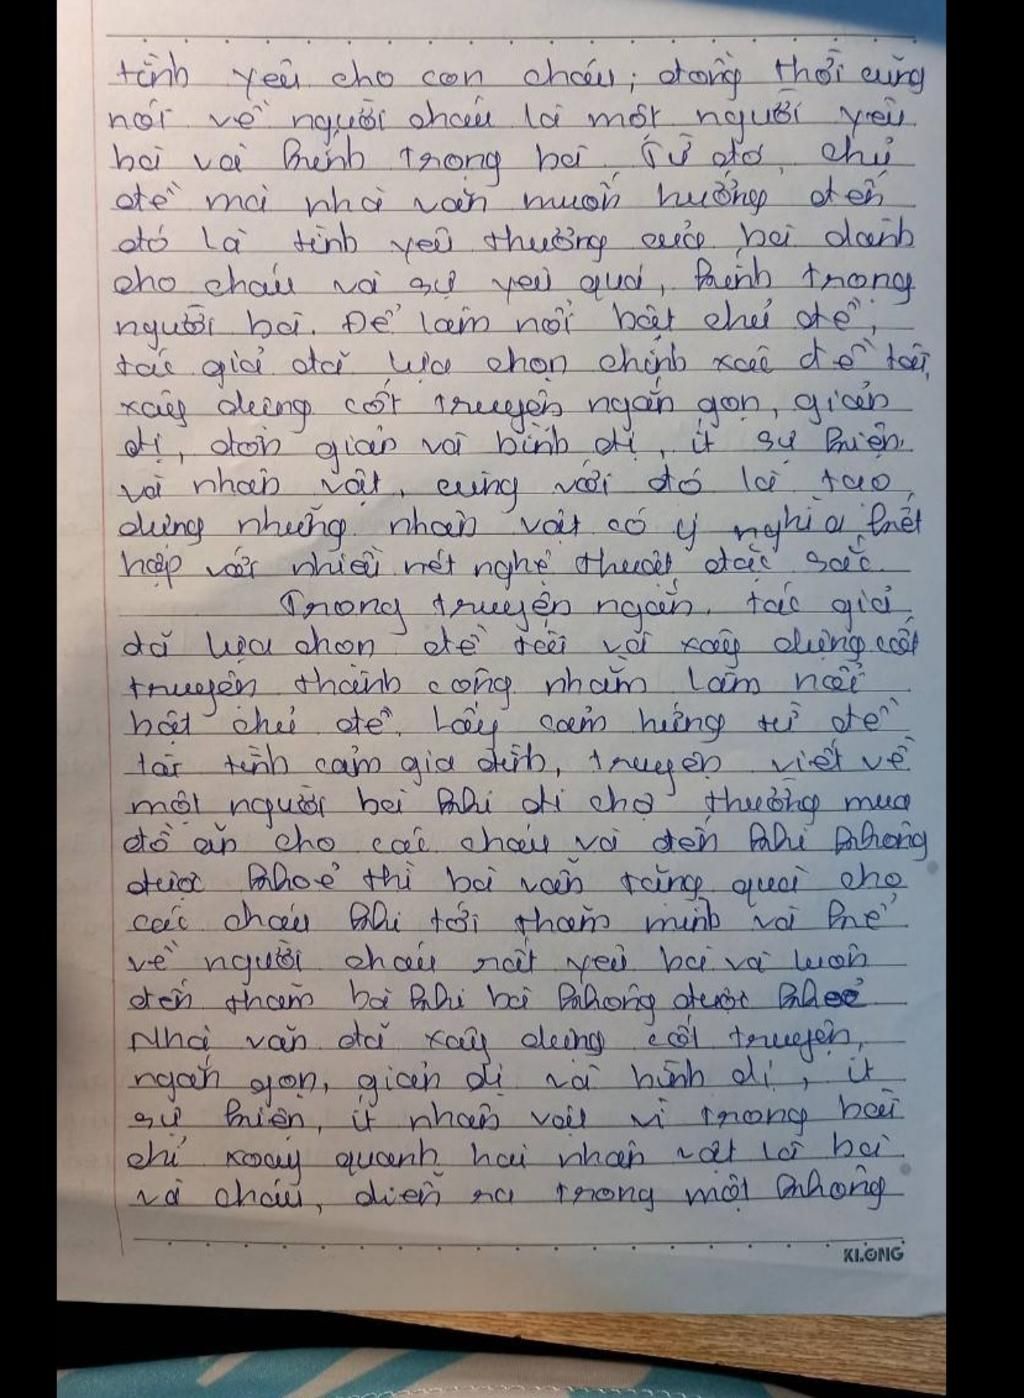 tình yêu cho con cháu; đồng thời cũng
nói về người cháu là một người yêu
bà và kính trọng bà. Từ đó, chủ
đề mà nhà văn muốn hướng đến
đó là tình yêu thương của bà dành
cho cháu và sự yêu quá, kính trong
người bà. Để làm nổi bật chủ đề,
tác giả đã lựa chọn chính xác đề tài,
xây dựng cốt truyện ngắn gọn, giản
dị, đơn giản và bình dị, ít sự kiện
và nhân vật, cùng với đó là tạo
dựng những nhân vật có ý nghĩa, kết
hợp với nhiều nét nghệ thuật đặc sắc.
Trong truyện ngắn, tác giả
đã lựa chọn đề tài và xây dựng cốt
truyện thành công nhằm làm nổi
bật chủ đề. Lấy cảm hứng từ đề
tài tình cảm gia đình, truyện viết về
một người bà khi đi chợ thường mua
đồ ăn cho các cháu và đến khi không
được khoẻ thì bà vẫn tặng quà cho
các cháu khi tới thăm mình và kể
về người cháu rất yêu bà và luôn
đến thăm bà khi bà không được khoẻ
Nhà văn đã xây dựng cốt truyện,
ngắn gọn, giản dị và bình dị, ít
sự kiện, ít nhân vật vì trong bài
chỉ xoay quanh hai nhân vật là bà
và cháu, diễn ra trong một không
KLONG